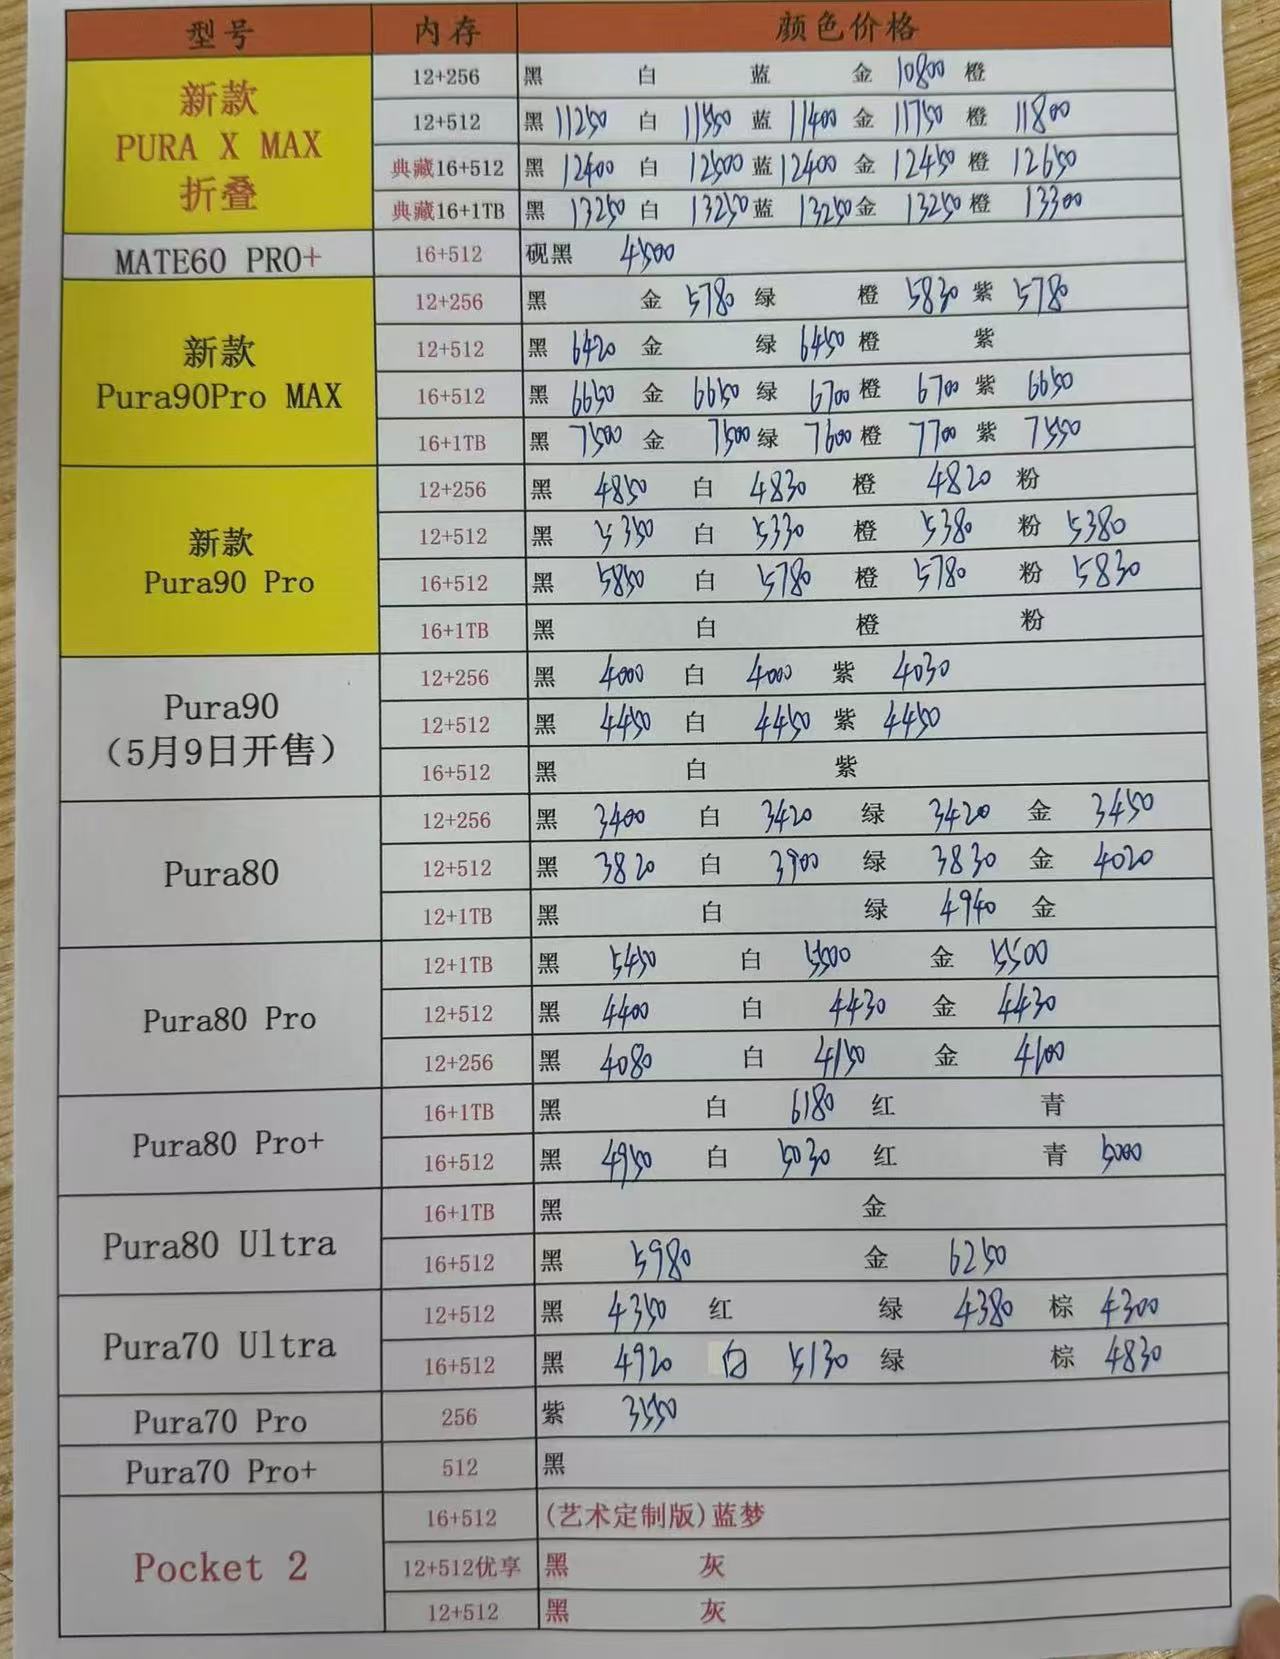 型号 内存 颜色价格
新款 PURA X MAX 折叠
12+256 黑 白 蓝 金 10800 橙
12+512 黑 11250 白 11550 蓝 11400 金 11750 橙 11800
典藏16+512 黑 12400 白 12500 蓝 12400 金 12450 橙 12650
典藏16+1TB 黑 13250 白 13250 蓝 13250 金 13250 橙 13300
MATE60 PRO+ 16+512 砚黑 4500
新款 Pura90Pro MAX
12+256 黑 金 5780 绿 橙 5830 紫 5780
12+512 黑 6420 金 绿 6450 橙 紫
16+512 黑 6650 金 6650 绿 6700 橙 6700 紫 6650
16+1TB 黑 7500 金 7500 绿 7600 橙 7700 紫 7550
新款 Pura90 Pro
12+256 黑 4850 白 4830 橙 4820 粉
12+512 黑 5350 白 5330 橙 5380 粉 5380
16+512 黑 5850 白 5780 橙 5780 粉 5830
16+1TB 黑 白 橙 粉
Pura90 (5月9日开售)
12+256 黑 4000 白 4000 紫 4030
12+512 黑 4450 白 4450 紫 4450
16+512 黑 白 紫
Pura80
12+256 黑 3400 白 3420 绿 3420 金 3450
12+512 黑 3820 白 3900 绿 3830 金 4020
12+1TB 黑 白 绿 4940 金
Pura80 Pro
12+1TB 黑 5450 白 5500 金 5500
12+512 黑 4400 白 4430 金 4430
12+256 黑 4080 白 4150 金 4100
Pura80 Pro+
16+1TB 黑 白 6180 红 青
16+512 黑 4950 白 5030 红 青 5000
Pura80 Ultra
16+1TB 黑 金
16+512 黑 5980 金 6250
Pura70 Ultra
12+512 黑 4350 红 绿 4380 棕 4300
16+512 黑 4920 白 5130 绿 棕 4830
Pura70 Pro 256 紫 3550
Pura70 Pro+ 512 黑
Pocket 2
16+512 (艺术定制版)蓝梦
12+512优享 黑 灰
12+512 黑 灰